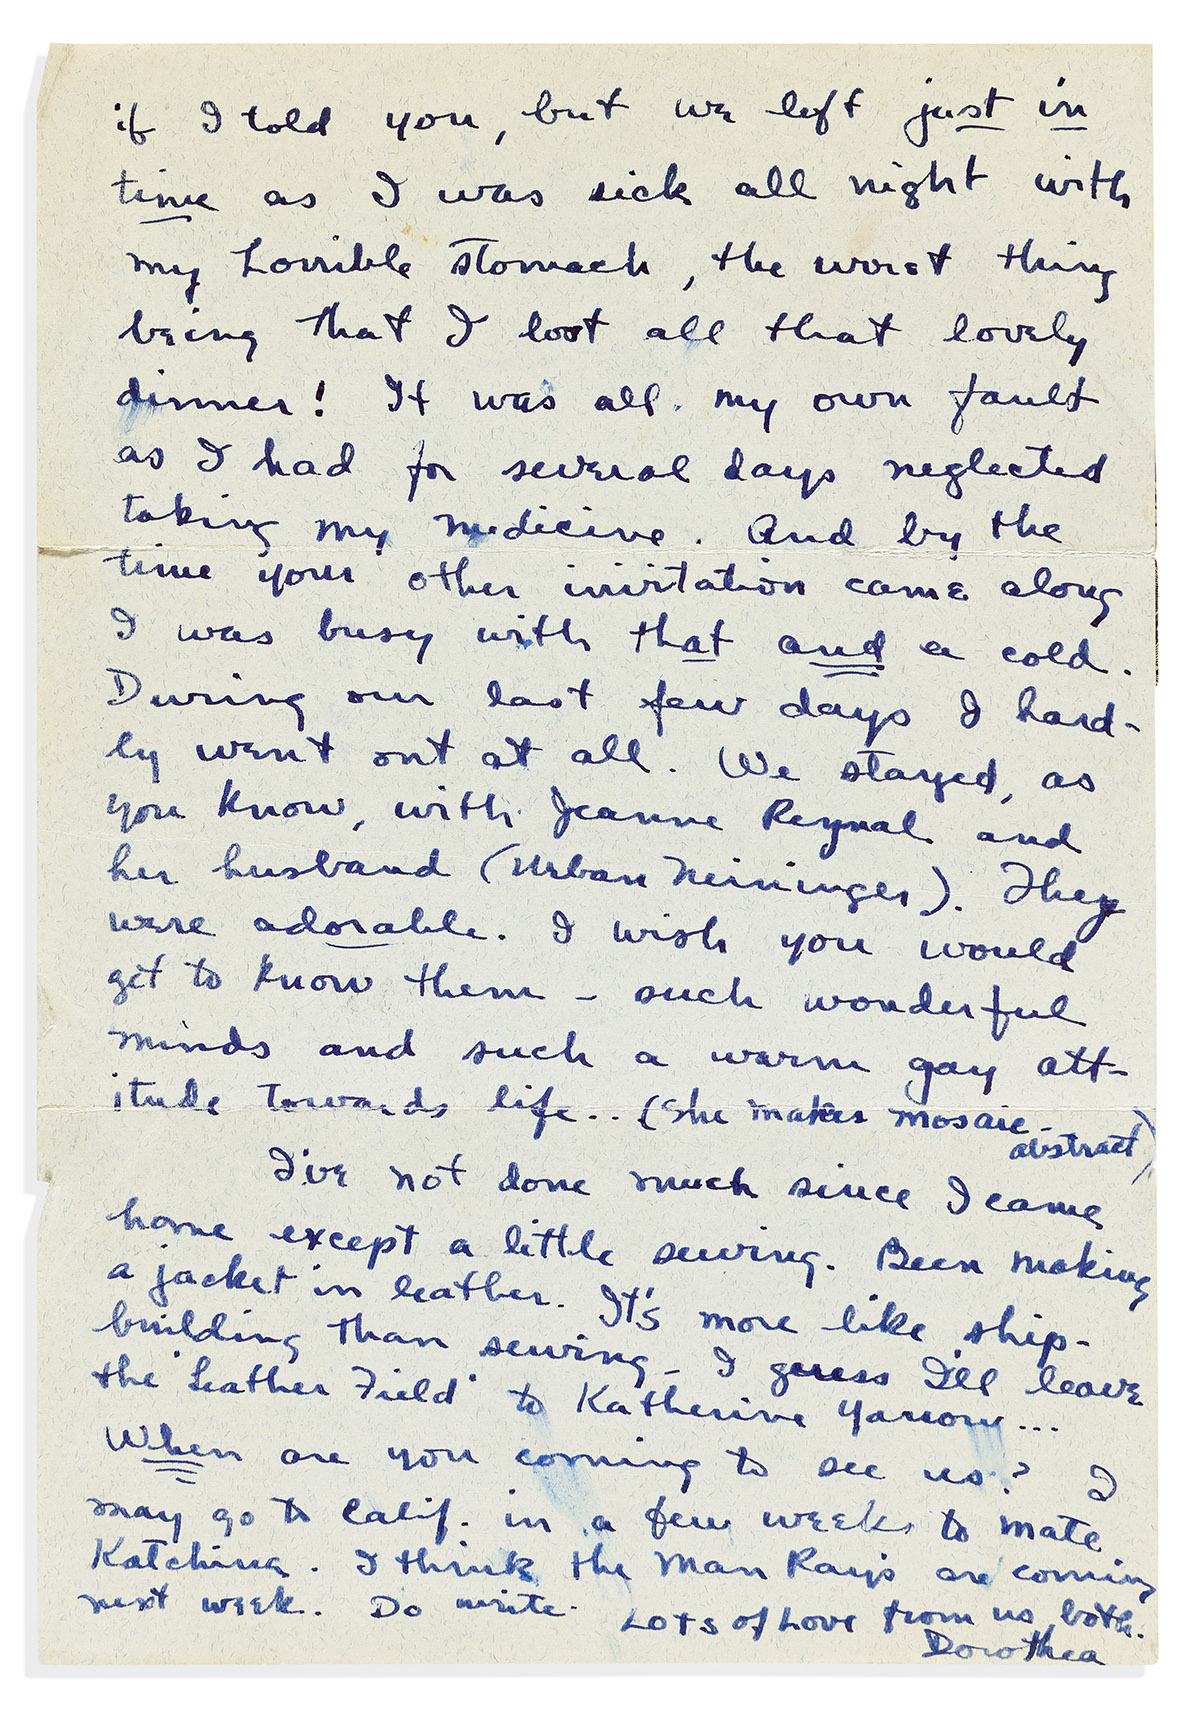 if I told you, but we left just in
time as I was sick all night with
my horrible stomach, the worst thing
being that I lost all that lovely
dinner! It was all my own fault
as I had for several days neglected
taking my medicine. And by the
time your other invitation came along
I was busy with that and a cold.
During our last few days I hard-
ly went out at all. We stayed, as
you know, with Jeanne Reynal and
her husband (Urban Neininger). They
were adorable. I wish you would
get to know them – such wonderful
minds and such a warm gay att-
itude towards life.. (She makes mosaic –
abstract)
I've not done much since I came
home except a little sewing. Been making
a jacket in leather. It's more like ship-
building than sewing – I guess I'll leave
the "Leather Field" to Katherine Yarrow...
When are you coming to see us? I
may go to Calif. in a few weeks to mate
Katchina. I think the Man Rays are coming
next week. Do write. Lots of Love from us both.
Dorothea